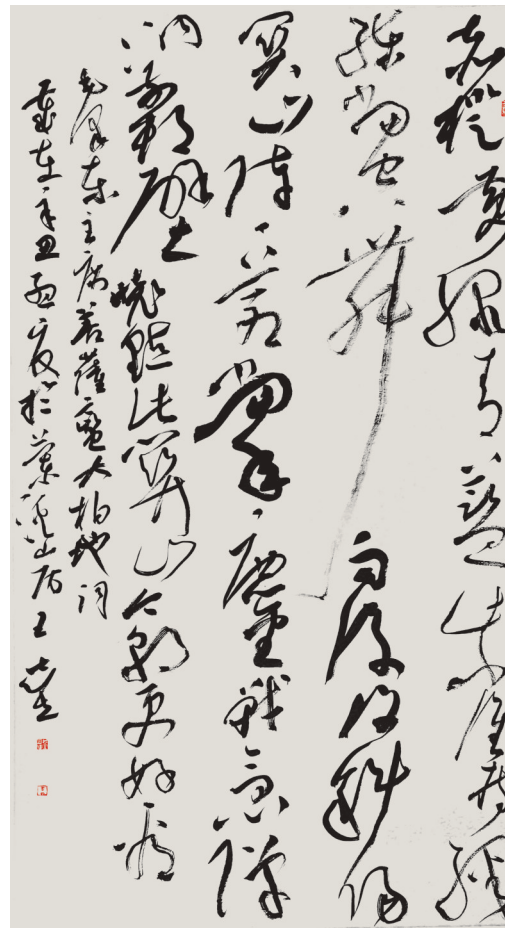 赤橙黄绿青蓝紫谁持綵
练当空舞雨後復斜阳
关山阵阵苍当年鏖战急弹
洞前村壁装點此关山今朝更好看
毛泽东主席菩萨蛮大柏地词
岁在辛丑孟夏於山居王